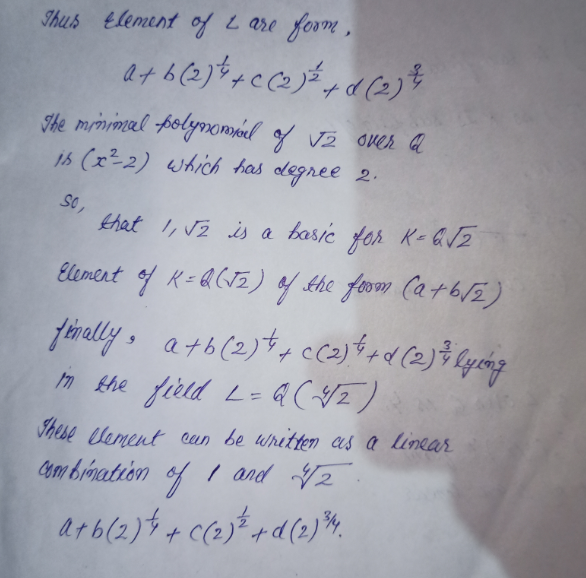 Thus Element of L are form,
a + b(2)^1/4 + c(2)^1/2 + d(2)^3/4
The minimal polynomial of √2 over Q
is (x²-2) which has degree 2.
so,
that 1, √2 is a basic for K = Q√2
Element of K = Q(√2) of the form (a+b√2)
finally, a+b(2)^1/4 + c(2)^1/4 + d(2)^3/4 lying
in the field L = Q(∜2)
These element can be written as a linear
combination of 1 and ∜2
a+b(2)^1/4 + c(2)^1/2 + d(2)^3/4.